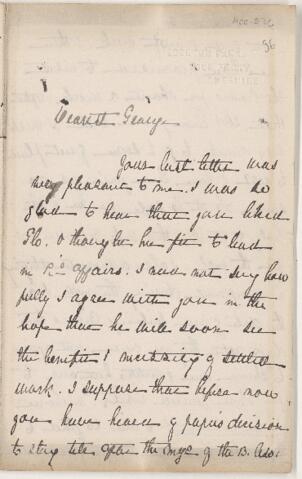 56
Dearest George
Your last letter was
very pleasant to me. I was so
glad to hear that you liked
Flo. & thought he fit to lead
in affairs. I need not say how
fully I agree with you in the
hope that he will soon see
the benefit & necessity of settled
work. I suppose that before now
you have heard of papa's decision
to stay till after the of the B. Asso.